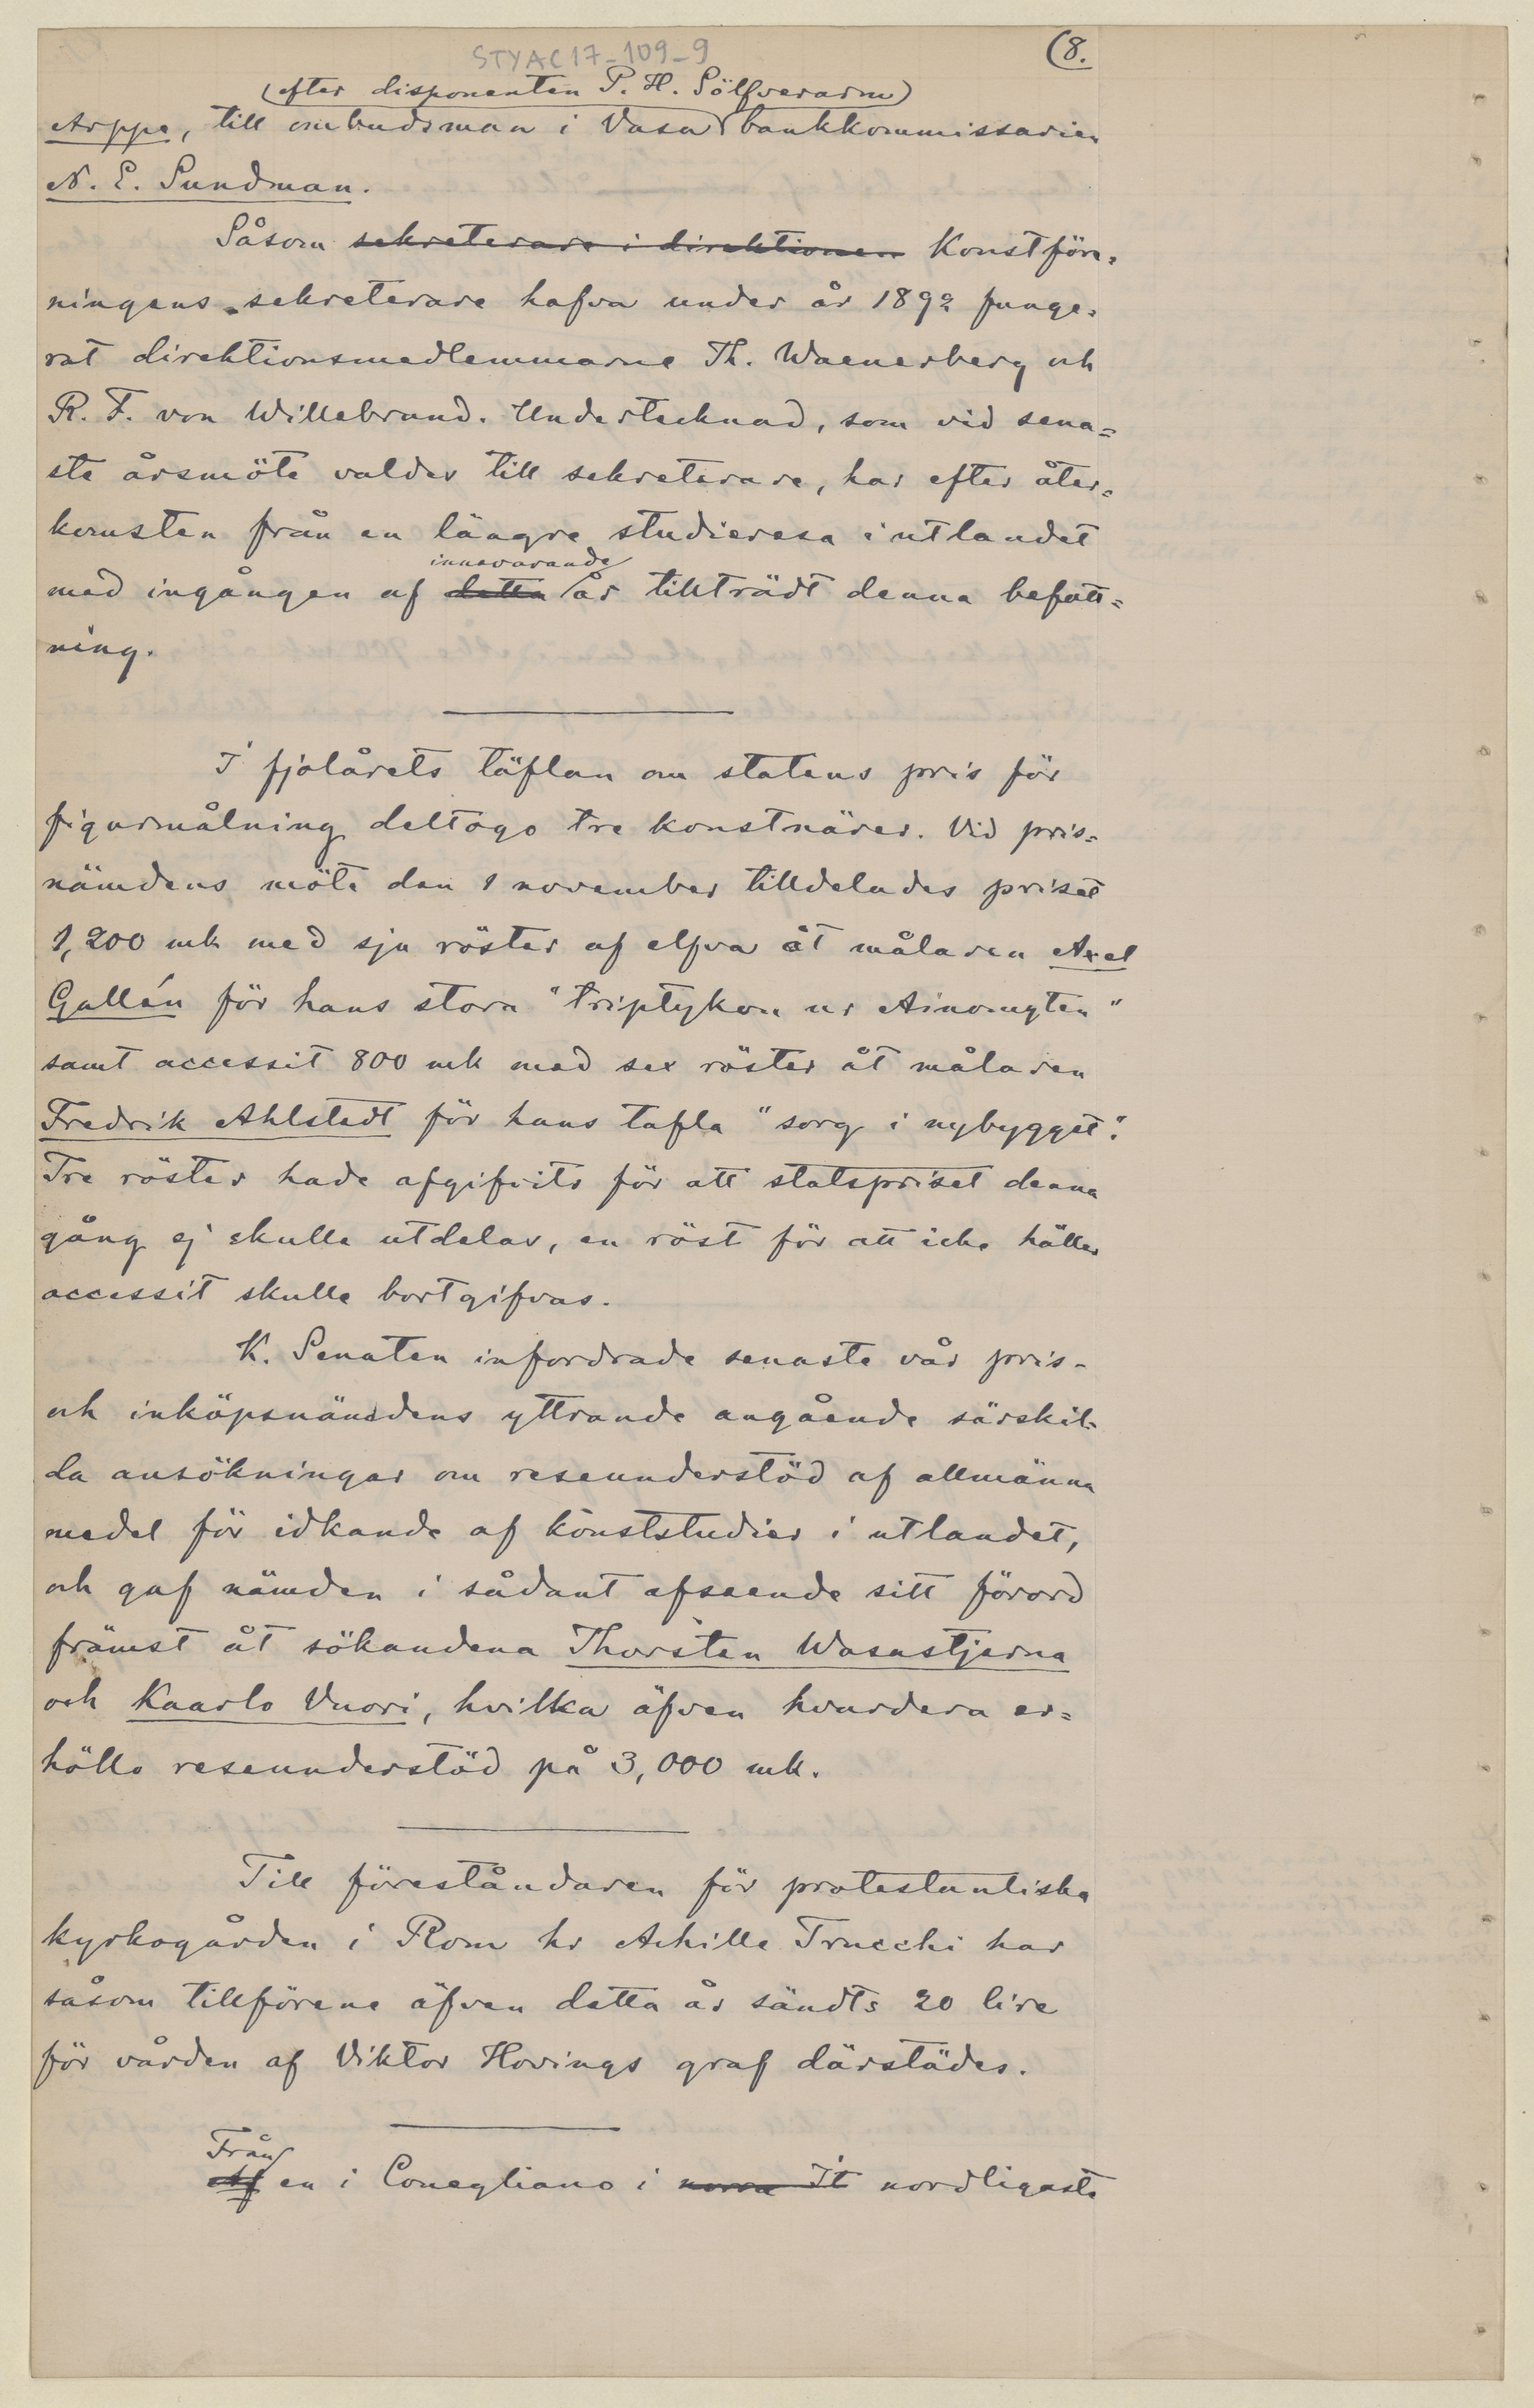 STYAC17-109-9
(8.
(efter disponenten P. H. Sölfverarm)
Arppe, till ombudsman i Vasa bankkommissarien
N. E. Sundman.
Såsom sekreterare i direktionen Konstföre=
ningens sekreterare hafva under år 1892 funge=
rat direktionsmedlemmarne Th. Waenerberg och
R. F. von Willebrand. Undertecknad, som vid sena=
ste årsmöte valdes till sekreterare, har efter åter=
komsten från en längre studieresa i utlandet
innevarande
med ingången af detta år tillträdt denna befatt=
ning.
I fjolårets täflan om statens pris för
figurmålning deltogo tre konstnärer. Vid pris=
nämdens möte den 1 november tilldelades priset
1,200 mk med sju röster af elfva åt målaren Axel
Gallén för hans stora "triptykon ur Ainomyten"
samt accessit 800 mk med sex röster åt målaren
Fredrik Ahlstedt för hans tafla "sorg i nybygget".
Tre röster hade afgifvits för att statspriset denna
gång ej skulle utdelas, en röst för att icke häller
accessit skulle bortgifvas.
K. Senaten infordrade senaste vår pris-
och inköpsnämdens yttrande angående särskil=
da ansökningar om reseunderstöd af allmänna
medel för idkande af konststudier i utlandet,
och gaf nämden i sådant afseende sitt förord
främst åt sökandena Thorsten Wasastjerna
och Kaarlo Vuori, hvilka äfven hvardera er=
höllo reseunderstöd på 3,000 mk.
Till föreståndaren för protestantiska
kyrkogården i Rom hr Achille Trucchi har
såsom tillförene äfven detta år sändts 20 lire
för vården af Viktor Hovings graf därstädes.
Från
Af en i Conegliano i norra It nordligaste